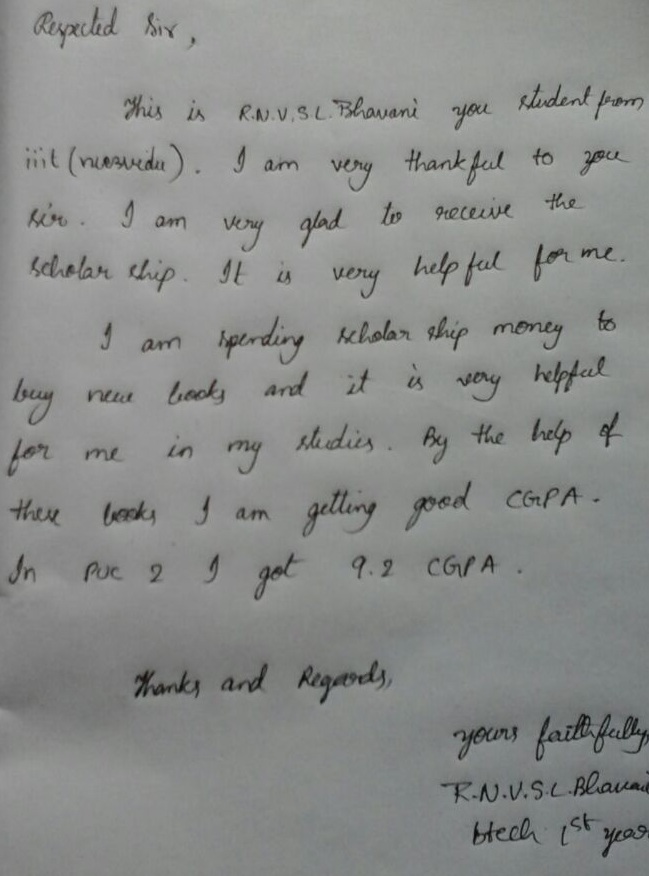 Respected Sir,
This is R.N.V.S.L. Bhavani you student from
iiit (nuzvidu). I am very thankful to you
sir. I am very glad to receive the
scholar ship. It is very help ful for me.
I am spending scholar ship money to
buy new books and it is very helpful
for me in my studies. By the help of
these books I am getting good CGPA.
In PUC 2 I got 9.2 CGPA.
Thanks and Regards,
yours faithfully,
R.N.V.S.L. Bhavani
btech 1st year